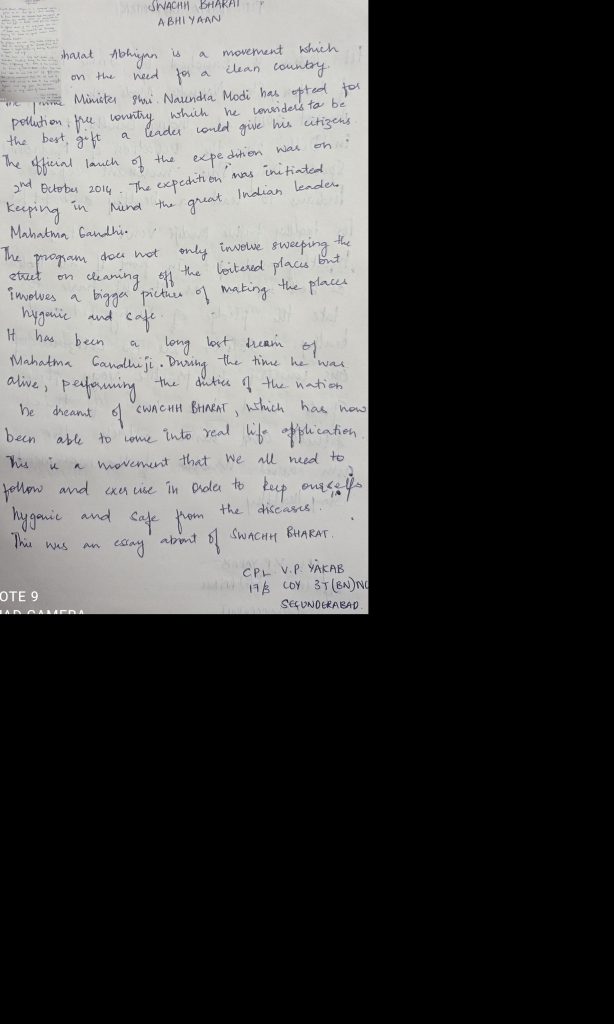 SWACHH BHARAT
ABHIYAAN
bharat Abhiyan is a movement which
on the need for a clean country
the Prime Minister Shri. Narendra Modi has opted for
pollution free country which he considers to be
the best gift a leader could give his citizens.
The official lauch of the expedition was on
2nd October 2014. The expedition was initiated
Keeping in Mind the great Indian leader
Mahatma Gandhi.
The program does not only involve sweeping the
street on cleaning off the loitered places but
involves a bigger picture of making the places
hygenic and safe.
It has been a long lost dream of
Mahatma Gandhiji. During the time he was
alive, performing the duties of the nation
he dreamt of SWACHH BHARAT, which has now
been able to come into real life application.
This is a movement that we all need to
follow and exercise in order to keep ourselfs
hygenic and safe from the diseases!
This was an essay about of SWACHH BHARAT.
CPL V.P. YAKAB
17/3 COY 3T(BN)NC
SECUNDERABAD.
OTE 9
AD CAMERA